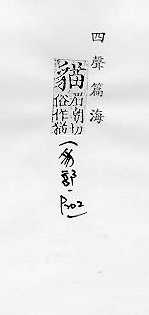 四聲篇海
貓
眉朝切
俗作猫
(豸部-P202)